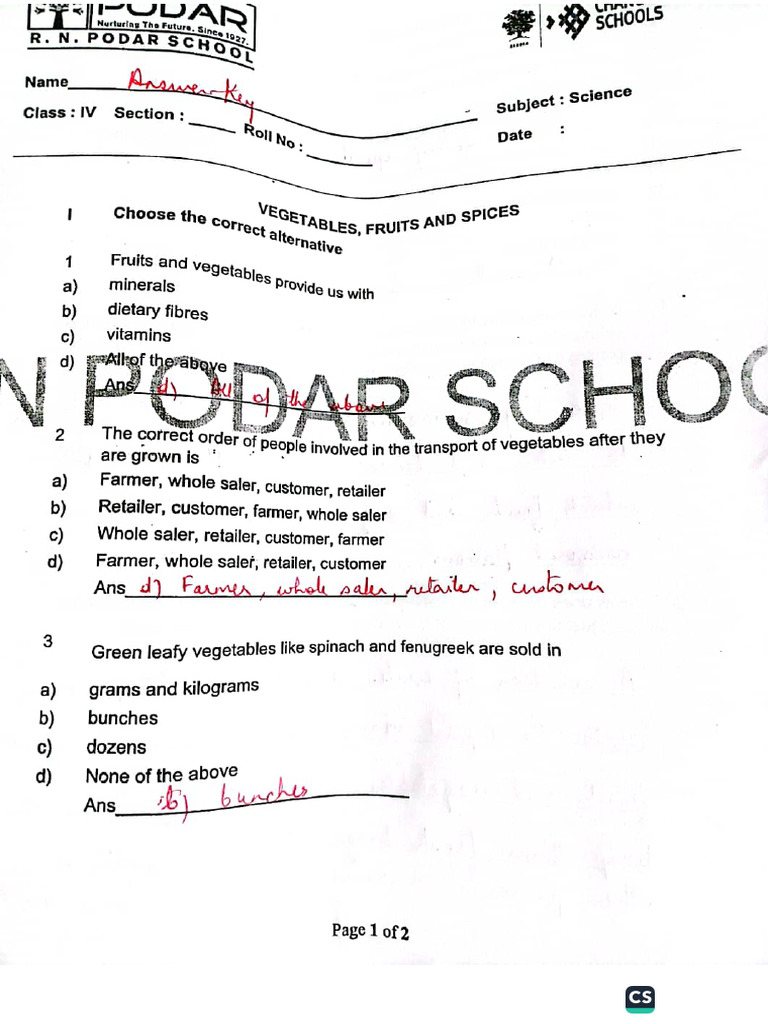 PODAR
Nurturing The Future, Since 1927.
R. N. PODAR SCHOOL
SCHOOLS
Name Answer-Key
Class : IV Section : Roll No :
Subject : Science
Date :
VEGETABLES, FRUITS AND SPICES
I Choose the correct alternative
1 Fruits and vegetables provide us with
a) minerals
b) dietary fibres
c) vitamins
d) All of the above
Ans d) All of the above
N PODAR SCHOO
2 The correct order of people involved in the transport of vegetables after they
are grown is
a) Farmer, whole saler, customer, retailer
b) Retailer, customer, farmer, whole saler
c) Whole saler, retailer, customer, farmer
d) Farmer, whole saler, retailer, customer
Ans d) Farmer, whole saler, retailer, customer
3 Green leafy vegetables like spinach and fenugreek are sold in
a) grams and kilograms
b) bunches
c) dozens
d) None of the above
Ans b) bunches
Page 1 of 2
CS